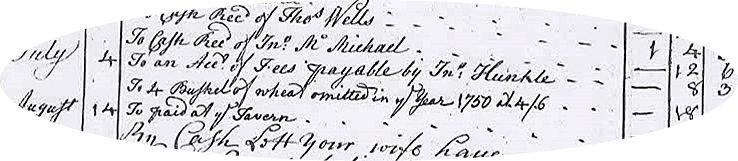 To Cash Recd of Thos Wells
To Cash Recd of Jno. McMichael - - - 1 4
July 4 To an Acct. of Fees payable by Jno. Hunkle - - — 12 6
To 4 Bushel of wheat omitted in ye Year 1750 at 4/6 — 8 3
August 14 To paid at ye Tavern - - - — 18
Cash Left Your wife